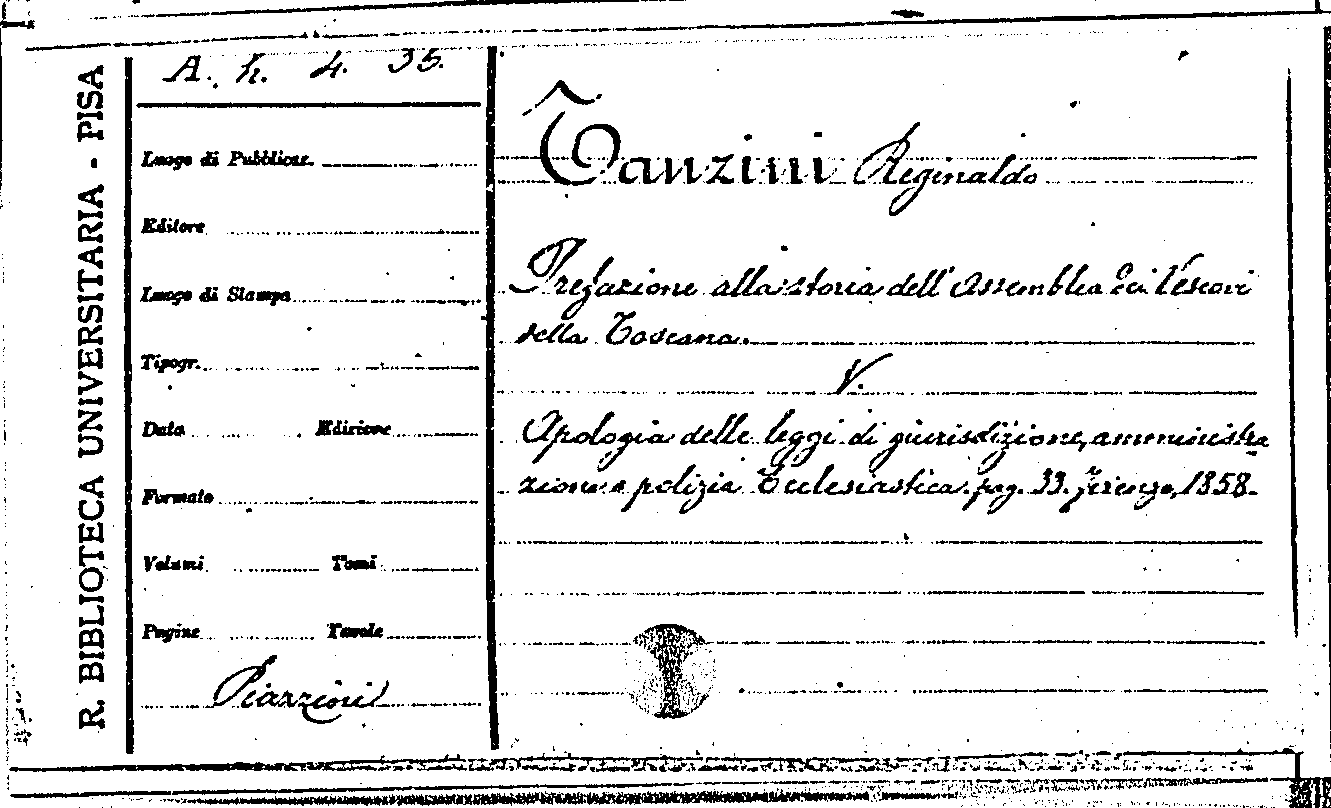 R. BIBLIOTECA UNIVERSITARIA - PISA
A. h. 4. 35.
Luogo di Pubblicaz.
Editore
Luogo di Stampa
Tipogr.
Data Edizione
Formato
Volumi Tomi
Pagine Tavole
Piazzini
Tanzini Reginaldo
Prefazione alla storia dell'Assemblea dei Vescovi
della Toscana.
V.
Apologia delle leggi di giurisdizione, amministra
zione e polizia Ecclesiastica. pag. 33. Firenze, 1858.